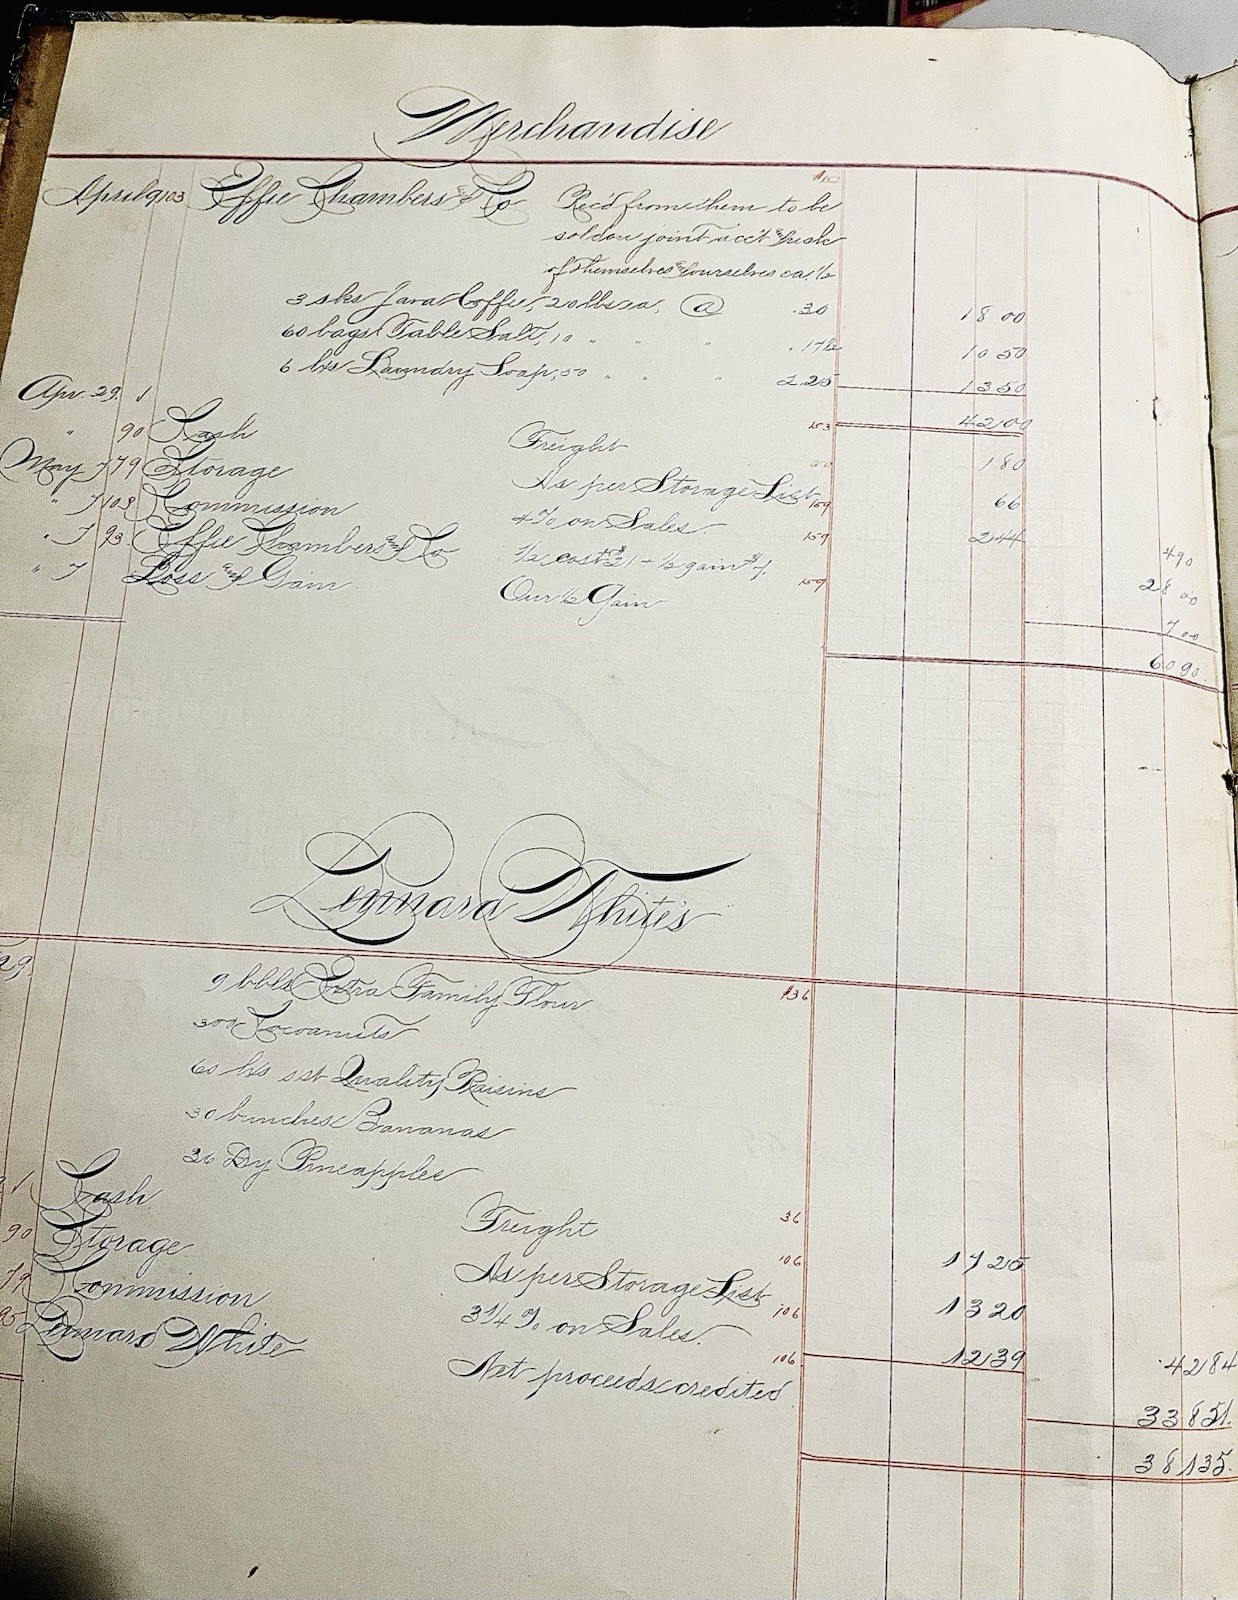 Merchandise
April 9 103 Effie Chambers and Co Rec'd from them to be
sold on joint acc't and risk
of themselves and ourselves ea. ½
3 sks Java Coffee, 20 lbs ea. @ .30 18 00
60 bags Table Salt, 10 " " " .17½ 10 50
6 bxs Laundry Soap, 50 " " " 2.25 13 50
Apr. 29. 1 42 00
" 90 Cash Freight 153 1 80
May 7 79 Storage As per Storage List 66
" 7 103 Commission 4% on Sales. 159 2 44 4 90
" 7 93 Effie Chambers and Co ½ cost $21 + ½ gain $7. 159 28 00
" 7 Loss and Gain Our ½ Gain 159 7 00
60 90
Lennard White's
29.
9 bbls Extra Family Flour 136
300 Cocoanuts
60 bxs 1st Quality Raisins
30 bunches Bananas
36 Dz Pineapples
Cash Freight 36 17 25
90 Storage As per Storage List 106 13 20
79 Commission 3¼% on Sales. 106 12 39 42 84
95 Lennard White Net proceeds credited 106 338 51.
381 35